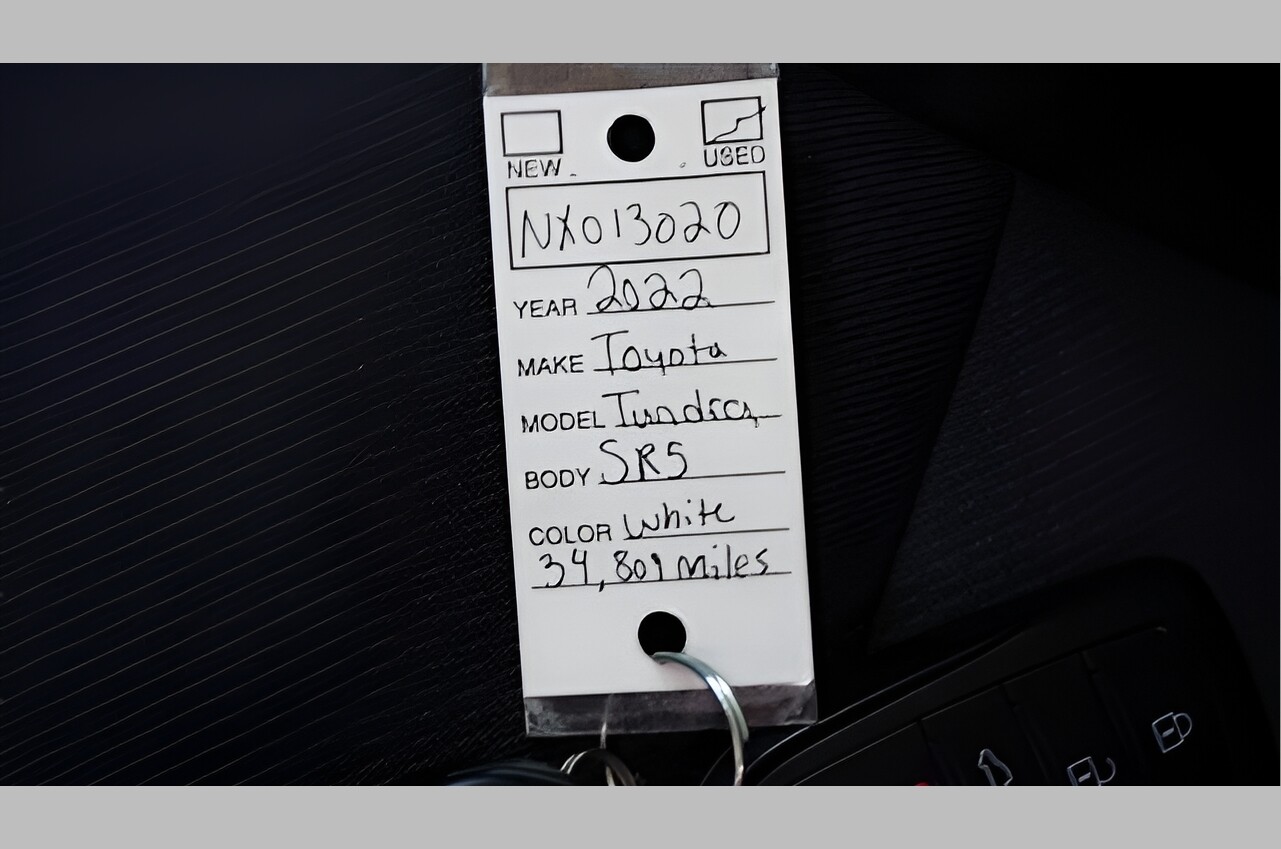 NEW USED
NX013020
YEAR 2022
MAKE Toyota
MODEL Tundra
BODY SR5
COLOR White
34,801 miles